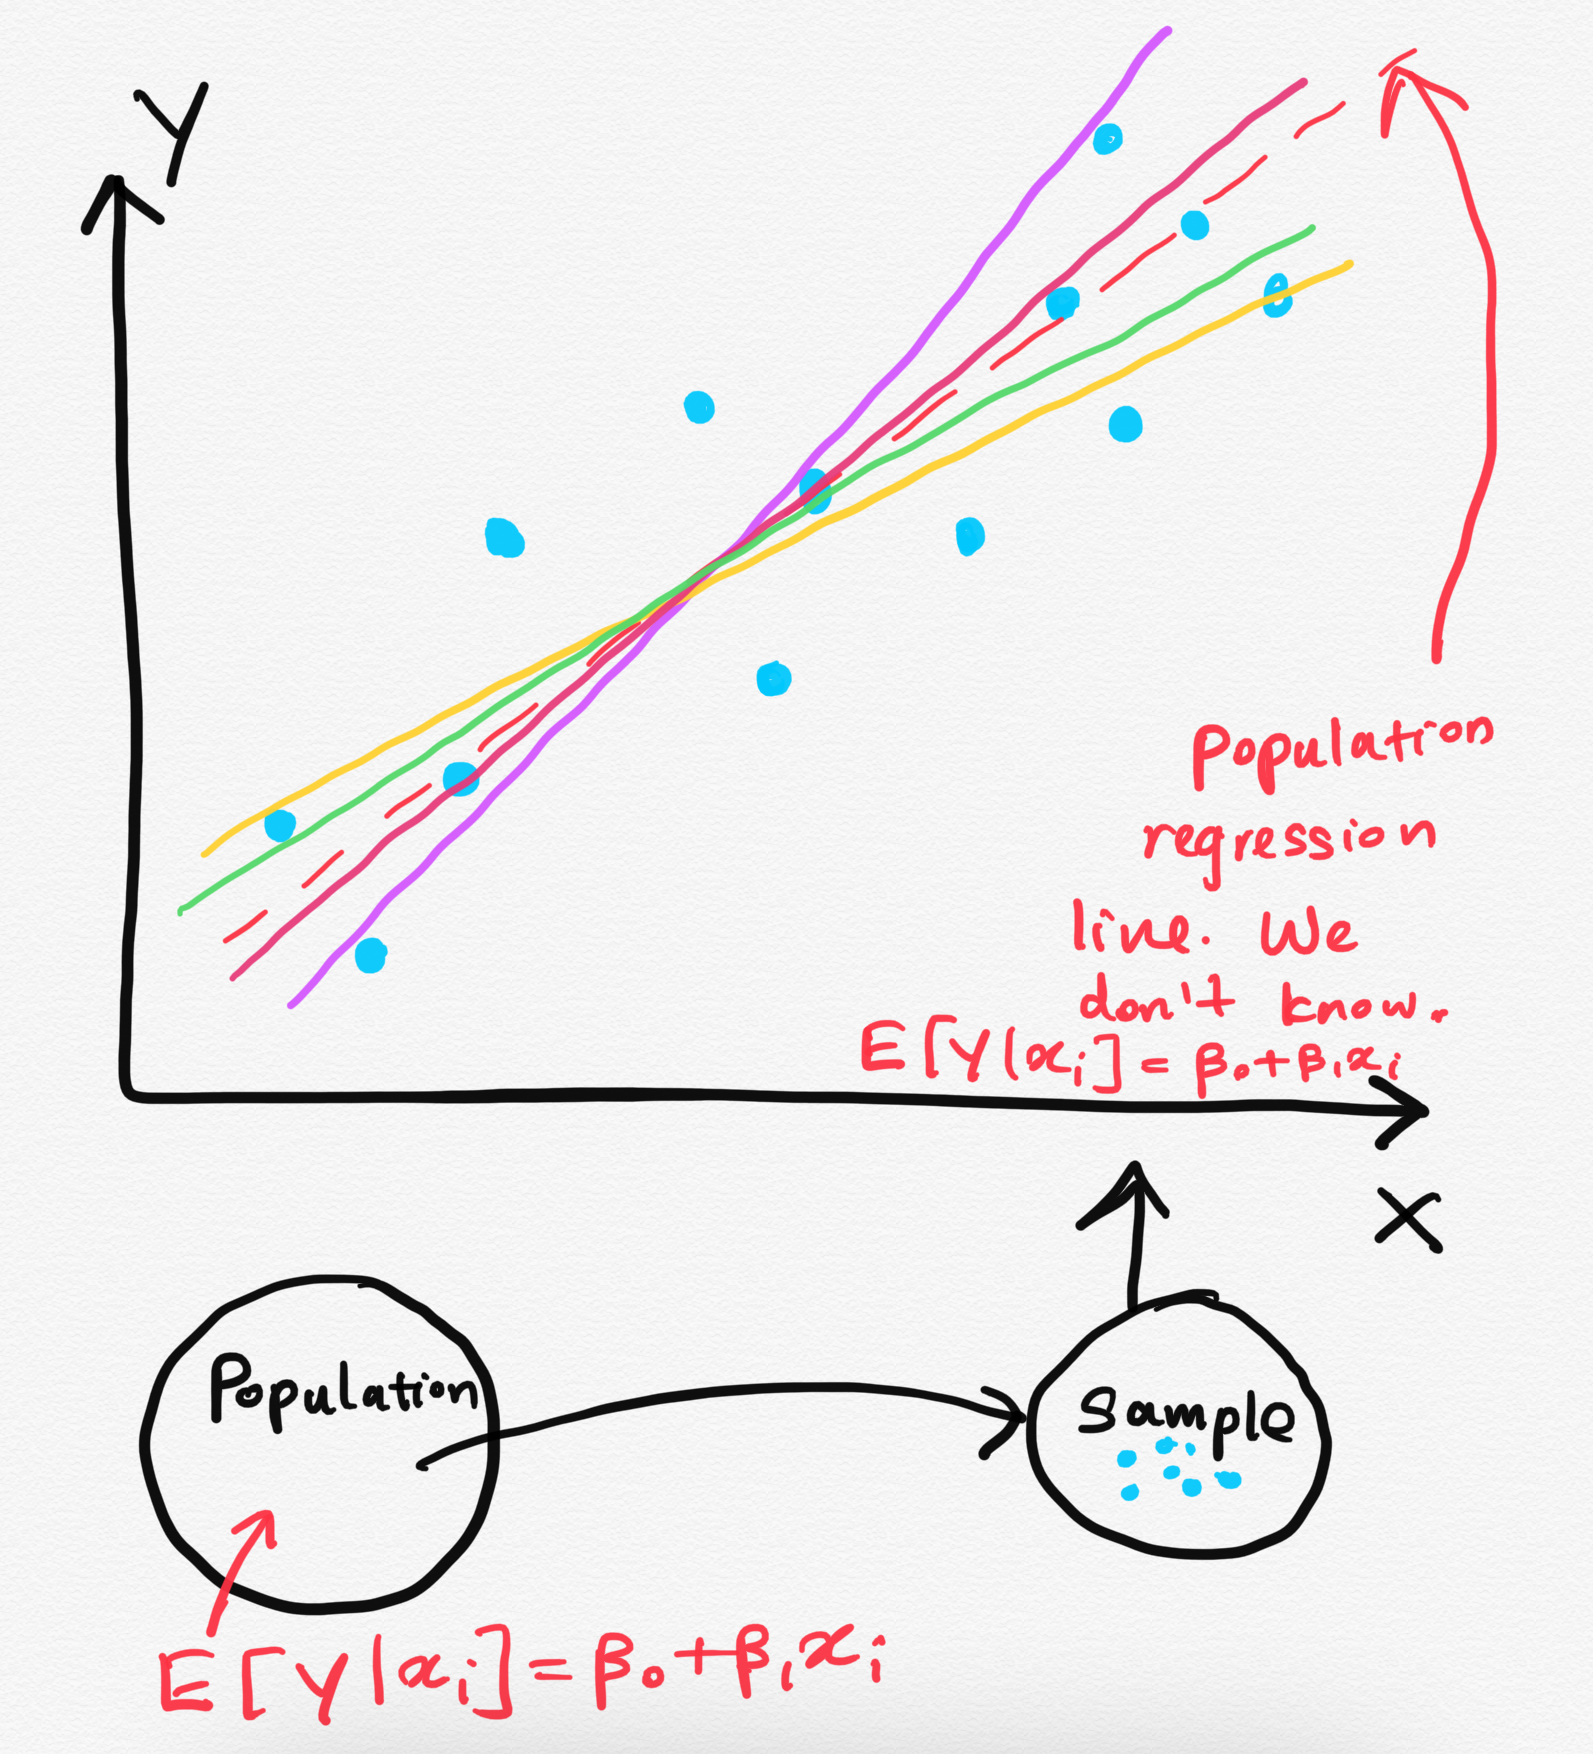 Y
Population
regression
line. We
don't know.
E[Y|xi] = β0+β1xi
X
Population
Sample
E[Y|xi] = β0+β1xi